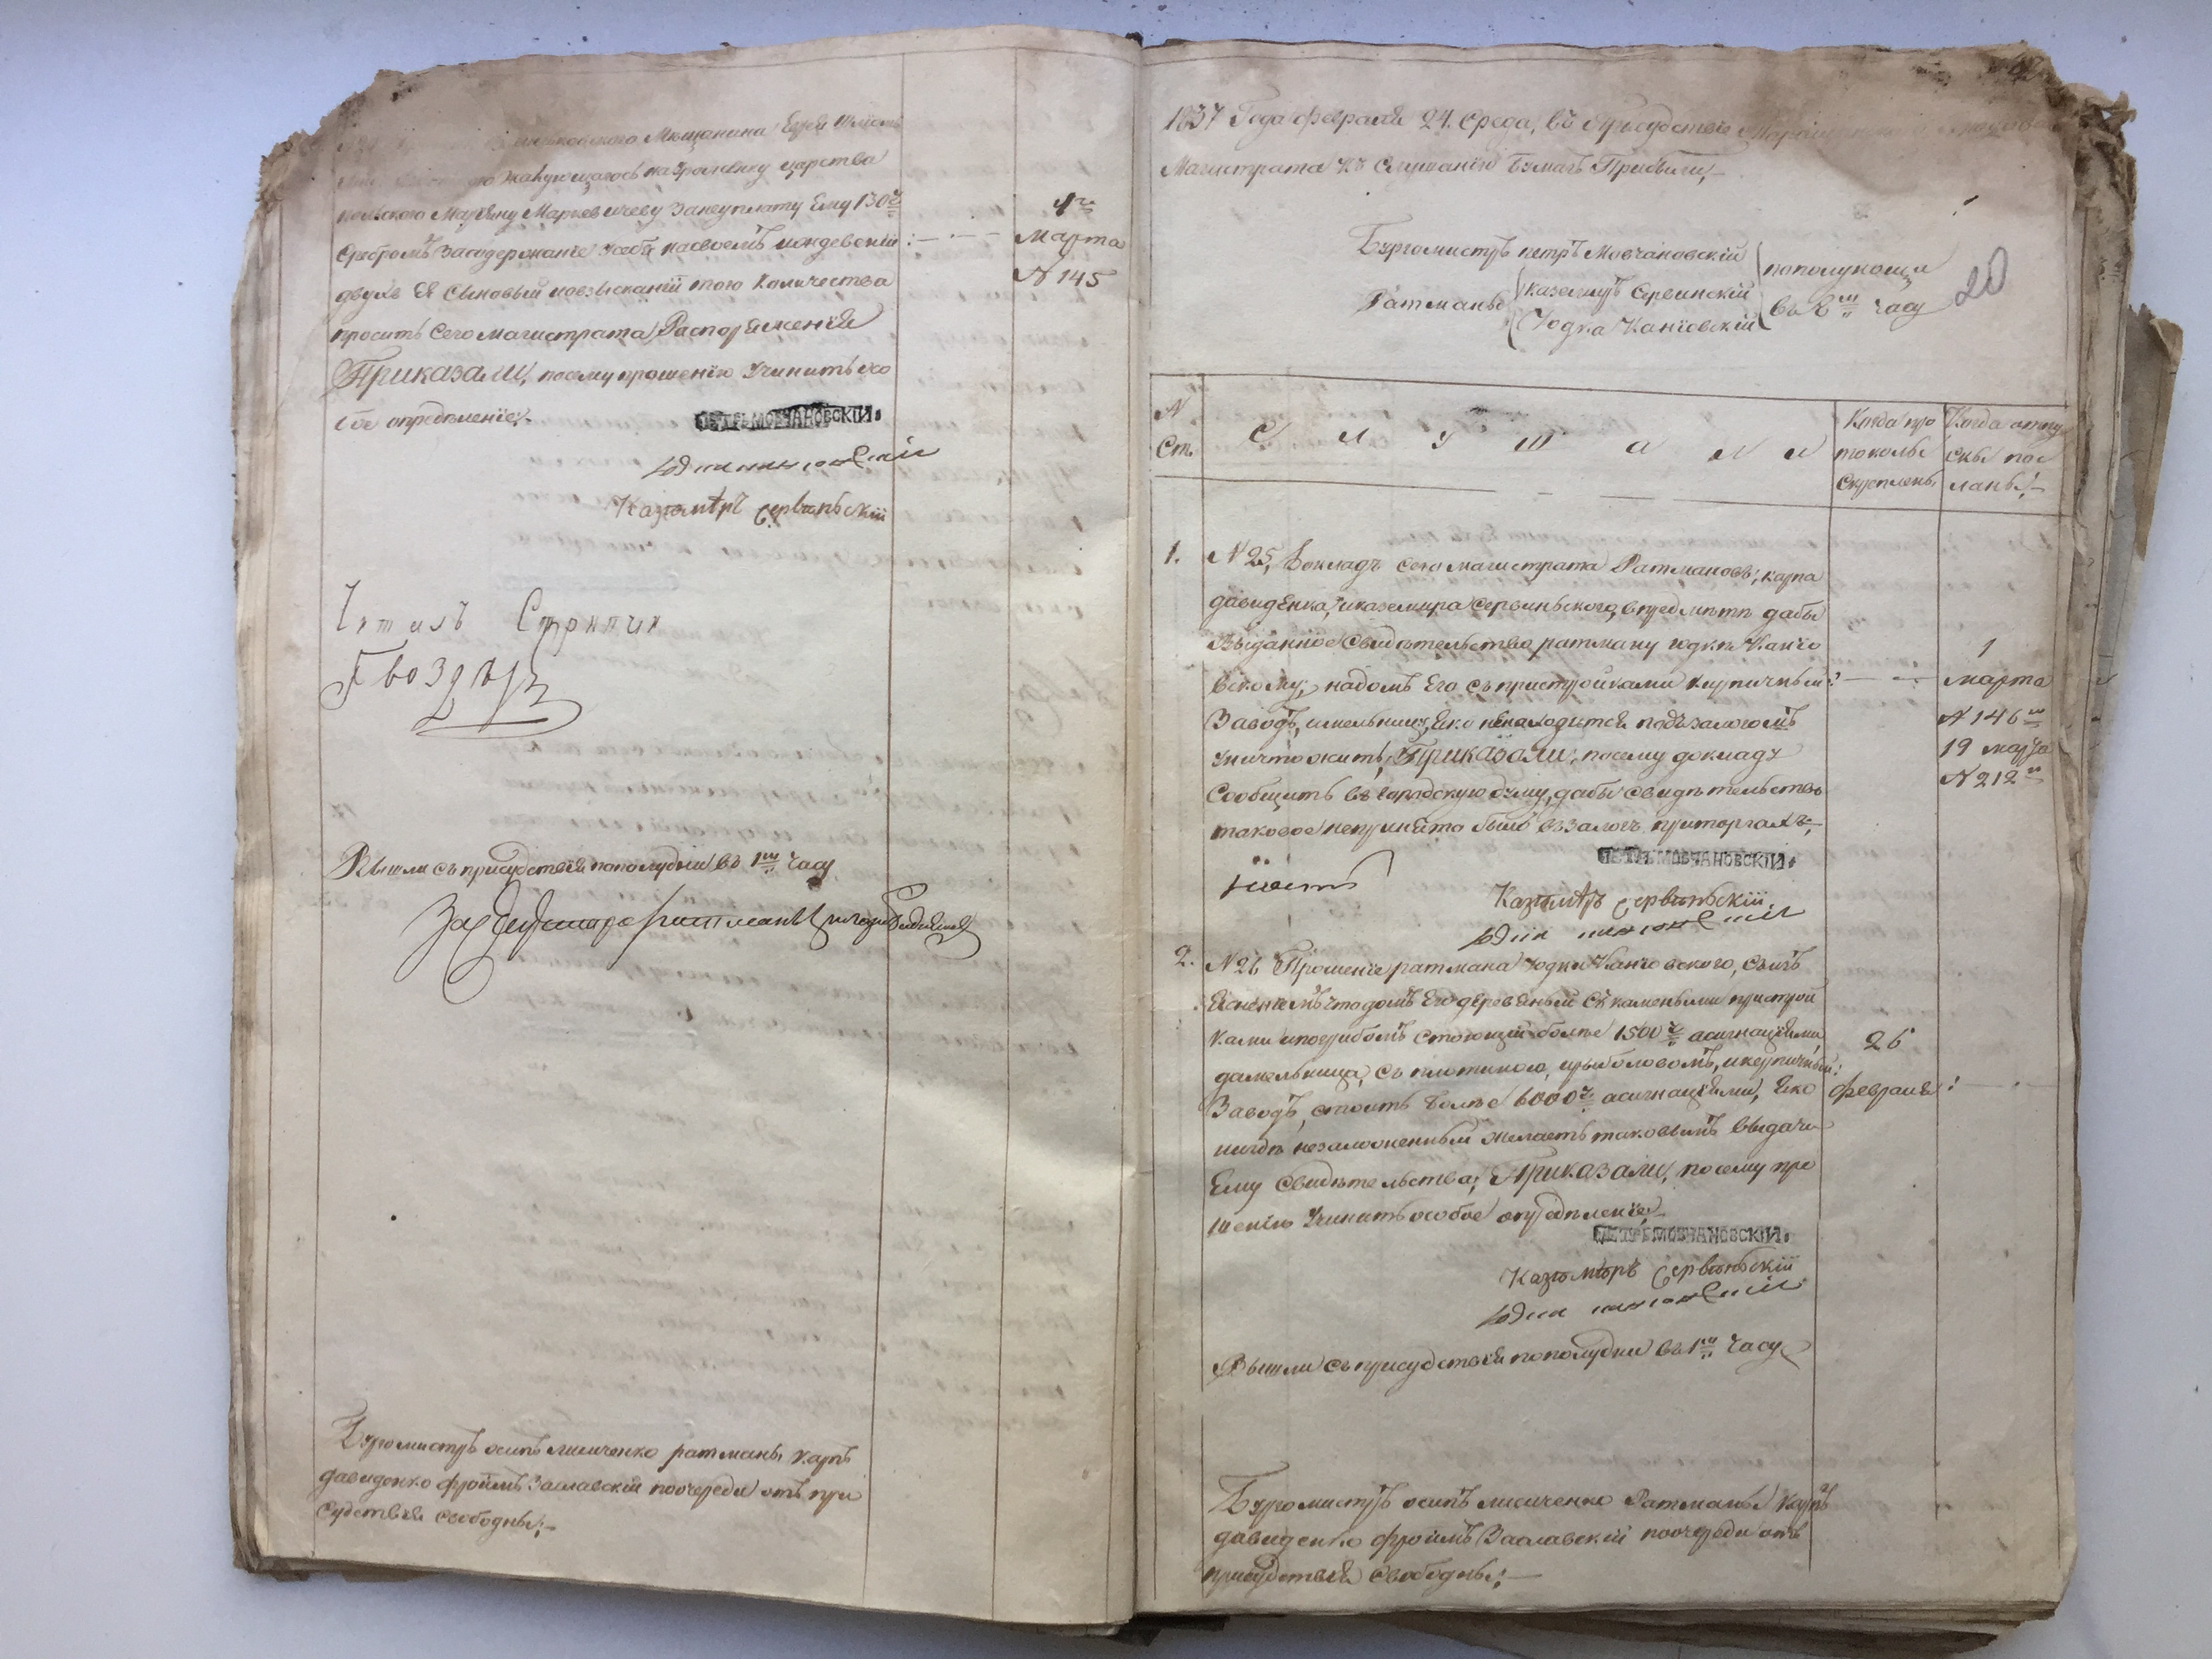 Мѣщанина
царства
польского Марьяну Марьевичеву занеуплату Ему 130 р
Сребромъ Засодержаніе Усебя насвоемъ
двухъ Ея Сыновый повзысканіи того Количества
просить Сего магистрата Распоряженія
Приказали, посему прошенію Учинить осо
бое опредѣленіе,
ПЕТРЪ МОВЧАНОВСКІЙ.
Казимѣръ Сервиньскій
1 го
Марта
№ 145
Читалъ Стряпчій
Гвоздырь
Вышли съ присудствія пополудни въ 1 м Часу
Бургомистръ осипъ лисиченко ратманы Карпъ
давиденко фроимъ Заславскій поочереди отъ при
Судствія свободны;
1837 Года февраля 24. Среда, въ Присудствіе
Магистрата къ Слушанію Бумагъ Прибыли,
Бургомистръ петръ Мовчановскій
Ратманы Каземиръ Сервинскій
Юдка Каніовскій
въ 8 м Часу
20
№ Ст.
С л у ш а л и
Когда про
токолы
Скреплены
Когда отпу
скы пос
ланы;
1. № 25, Докладъ сего магистрата Ратмановъ, карпа
давиденка, иказемира Сервиньского, впредмѣтѣ дабы
Выданное Свидѣтельство ратману юдкѣ Каніо
вскому, надомъ Его съ пристройками Кирпичный
Заводъ, имельницу, Яко ненаходится подъ залогомъ
уничтожить, Приказали, посему докладу
Сообщить въ Городскую думу, дабы свидѣтельство
таковое непринято было въ залогъ приторгахъ,
1
марта
№ 146 м
19 марта
№ 212 м
ПЕТРЪ МОВЧАНОВСКІЙ.
Казимѣръ Сервиньскій
2. № 26 Прошеніе ратмана Юдки Каніовского, Съизъ
ясненіемъ что домъ Его деревяный Съ каменными пристрой
ками ипогрибомъ стоющій болѣе 1500 р асигнаціями,
да мельница, съ плотиною, ирыболовомъ, икерпичный
Заводъ, стоить болѣе 6000 р асигнаціями, Яко
нигдѣ незаложенный желаетъ таковымъ выдачи
Ему Свидѣтельства; Приказали, посему про
шенію Учинить особое опредѣленіе,
26
февраля
ПЕТРЪ МОВЧАНОВСКІЙ.
Казимѣръ Сервиньскій
Вышли съ присудствія пополудни въ 1 м Часу
Бургомистръ осипъ лисиченко Ратманы Карпъ
давиденко фроимъ Заславскій поочереди отъ
присудствія Свободны;